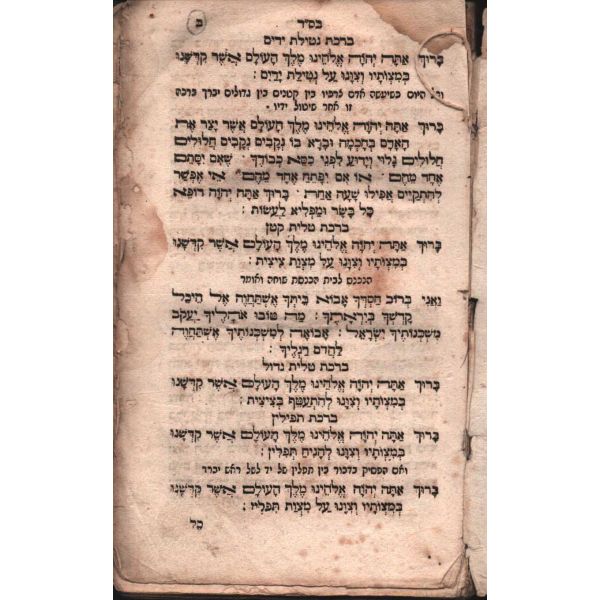 בס״ד ב
ברכת נטילת ידים
בָּרוּךְ אַתָּה יְהֹוָה אֱלֹהֵינוּ מֶלֶךְ הָעוֹלָם אֲשֶׁר קִדְּשָׁנוּ
בְּמִצְוֹתָיו וְצִוָּנוּ עַל נְטִילַת יָדָיִם :
וכל היום כשיעשה אדם צרכיו בין קטנים בין גדולים יברך ברכה
זו אחר שיטול ידיו .
בָּרוּךְ אַתָּה יְהֹוָה אֱלֹהֵינוּ מֶלֶךְ הָעוֹלָם אֲשֶׁר יָצַר אֶת
הָאָדָם בְּחָכְמָה וּבָרָא בוֹ נְקָבִים נְקָבִים חֲלוּלִים
חֲלוּלִים גָּלוּי וְיָדוּעַ לִפְנֵי כִסֵּא כְבוֹדֶךָ שֶׁאִם יִסָּתֵם
אֶחָד מֵהֶם אוֹ אִם יִפָּתֵחַ אֶחָד מֵהֶם אִי אֶפְשַׁר
לְהִתְקַיֵּים אֲפִילּוּ שָׁעָה אֶחָת . בָּרוּךְ אַתָּה יְהֹוָה רוֹפֵא
כָל בָּשָׂר וּמַפְלִיא לַעֲשׂוֹת :
ברכת טלית קטן
בָּרוּךְ אַתָּה יְהֹוָה אֱלֹהֵינוּ מֶלֶךְ הָעוֹלָם אֲשֶׁר קִדְּשָׁנוּ
בְּמִצְוֹתָיו וְצִוָּנוּ עַל מִצְוַת צִיצִית :
הנכנס לבית הכנסת שוחה ואומר
וַאֲנִי בְּרוֹב חַסְדְּךָ אָבוֹא בֵיתֶךָ אֶשְׁתַּחֲוֶה אֶל הֵיכַל
קָדְשְׁךָ בְּיִרְאָתֶךָ : מַה טּוֹבוּ אֹהָלֶיךָ יַעֲקֹב
מִשְׁכְּנוֹתֶיךָ יִשְׂרָאֵל : אָבוֹאָה לְמִשְׁכְּנוֹתֶיךָ אֶשְׁתַּחֲוֶה
לַהֲדֹם רַגְלֶיךָ :
ברכת טלית גדול
בָּרוּךְ אַתָּה יְהֹוָה אֱלֹהֵינוּ מֶלֶךְ הָעוֹלָם אֲשֶׁר קִדְּשָׁנוּ
בְּמִצְוֹתָיו וְצִוָּנוּ לְהִתְעַטֵּף בְּצִיצִית :
ברכת תפילין
בָּרוּךְ אַתָּה יְהֹוָה אֱלֹהֵינוּ מֶלֶךְ הָעוֹלָם אֲשֶׁר קִדְּשָׁנוּ
בְּמִצְוֹתָיו וְצִוָּנוּ לְהַנִּיחַ תְּפִלִּין :
ואם הפסיק בדבור בין תפלין של יד לשל ראש יברך
בָּרוּךְ אַתָּה יְהֹוָה אֱלֹהֵינוּ מֶלֶךְ הָעוֹלָם אֲשֶׁר קִדְּשָׁנוּ
בְּמִצְוֹתָיו וְצִוָּנוּ עַל מִצְוַת תְּפִלִּין :
כָל